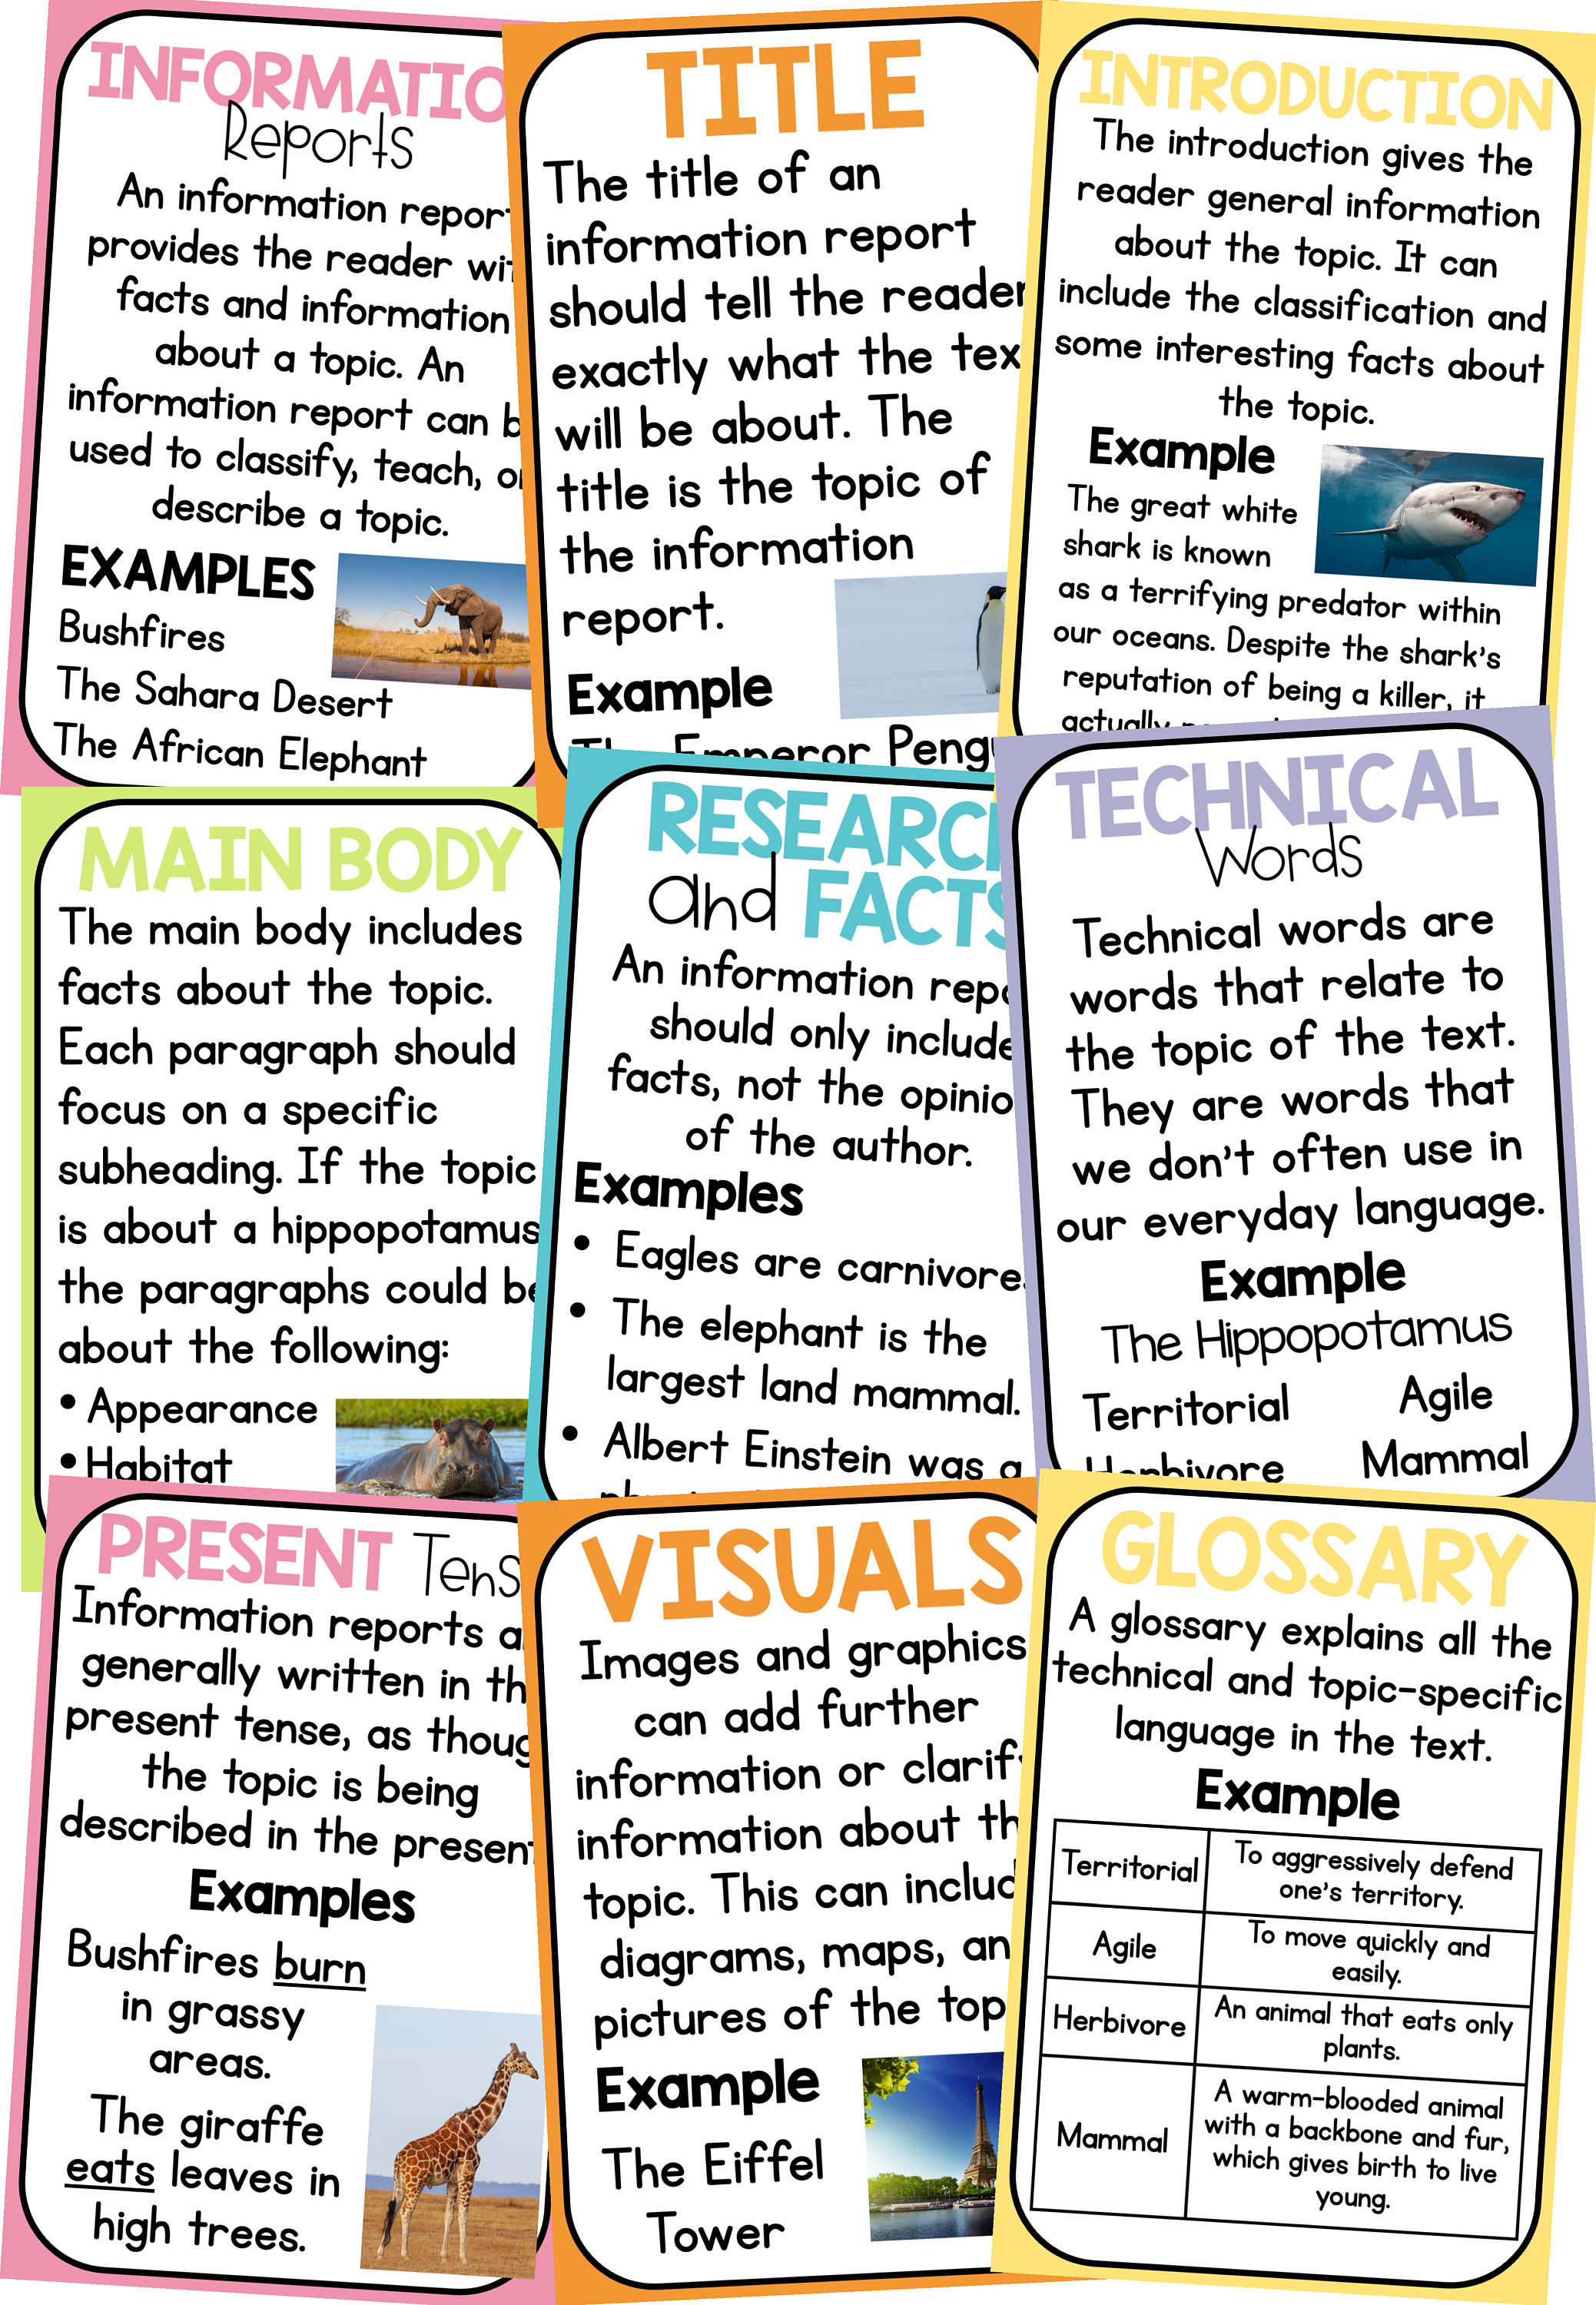 INFORMATIO
Reports
An information repor
provides the reader wi
facts and information
about a topic. An
information report can b
used to classify, teach, o
describe a topic.
EXAMPLES
Bushfires
The Sahara Desert
The African Elephant
TITLE
The title of an
information report
should tell the reader
exactly what the tex
will be about. The
title is the topic of
the information
report.
Example
The Emperor Peng
INTRODUCTION
The introduction gives the
reader general information
about the topic. It can
include the classification and
some interesting facts about
the topic.
Example
The great white
shark is known
as a terrifying predator within
our oceans. Despite the shark's
reputation of being a killer, it
actually
MAIN BODY
The main body includes
facts about the topic.
Each paragraph should
focus on a specific
subheading. If the topic
is about a hippopotamus
the paragraphs could be
about the following:
• Appearance
• Habitat
RESEARC
and FACTS
An information repo
should only include
facts, not the opinio
of the author.
Examples
• Eagles are carnivore
• The elephant is the
largest land mammal.
• Albert Einstein was a
TECHNICAL
Words
Technical words are
words that relate to
the topic of the text.
They are words that
we don't often use in
our everyday language.
Example
The Hippopotamus
Territorial Agile
Herbivore Mammal
PRESENT Tens
Information reports a
generally written in th
present tense, as thoug
the topic is being
described in the present
Examples
Bushfires burn
in grassy
areas.
The giraffe
eats leaves in
high trees.
VISUALS
Images and graphics
can add further
information or clarify
information about th
topic. This can includ
diagrams, maps, an
pictures of the top
Example
The Eiffel
Tower
GLOSSARY
A glossary explains all the
technical and topic-specific
language in the text.
Example
Territorial To aggressively defend
one's territory.
Agile To move quickly and
easily.
Herbivore An animal that eats only
plants.
Mammal A warm-blooded animal
with a backbone and fur,
which gives birth to live
young.